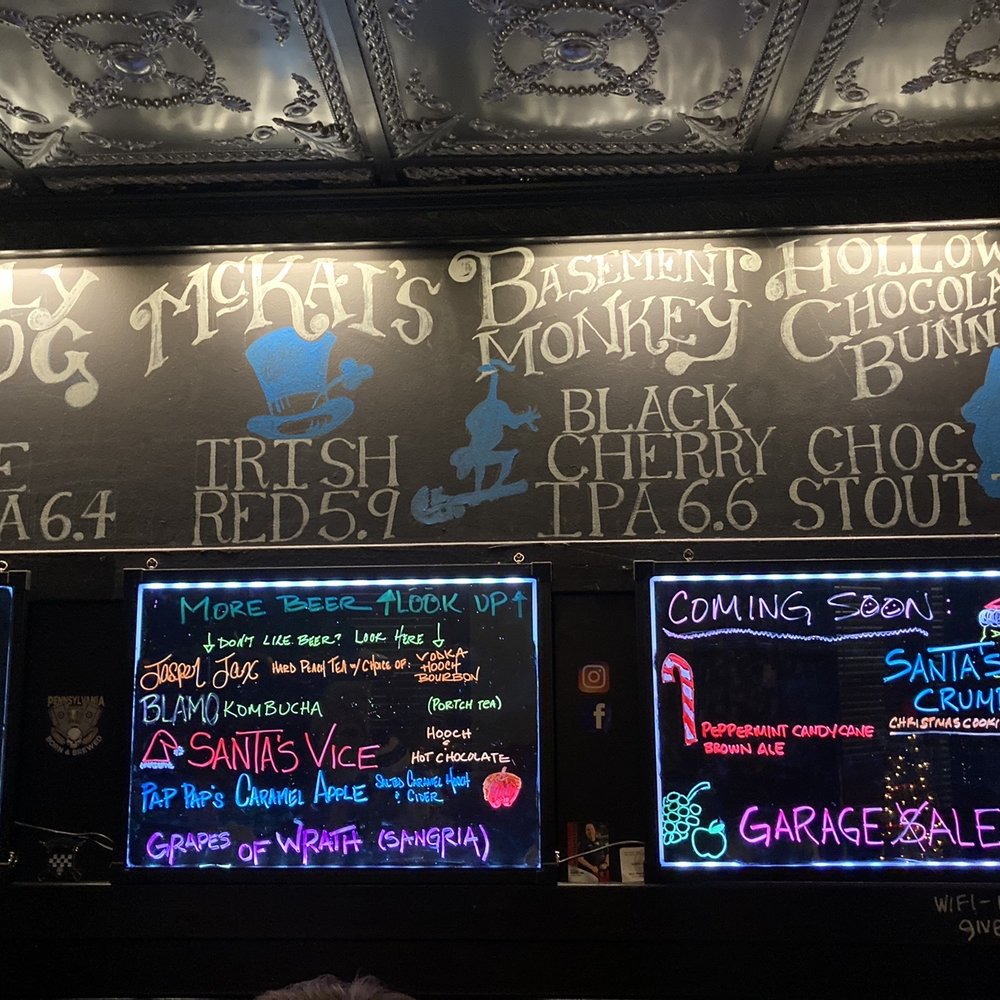 LY
OG
E
A 6.4
McKAI'S
IRISH
RED 5.9
BASEMENT
MONKEY
BLACK
CHERRY
IPA 6.6
HOLLOW
CHOCOLA
BUNN
CHOC.
STOUT
MORE BEER ↑LOOK UP↑
↓DON'T LIKE BEER? LOOK HERE↓
JASPER JAX HARD PEACH TEA w/ CHOICE OF: VODKA
HOOCH
BOURBON
BLAMO KOMBUCHA (PORTCH TEA)
SANTA'S VICE HOOCH
&
HOT CHOCOLATE
PAP PAP'S CARAMEL APPLE SALTED CARAMEL HOOCH
& CIDER
GRAPES OF WRATH (SANGRIA)
COMING SOON:
SANTA'S
CRUM
CHRISTMAS COOKI
PEPPERMINT CANDYCANE
BROWN ALE
GARAGE SALE
PENNSYLVANIA
BORN & BREWED
WIFI-
GIVE